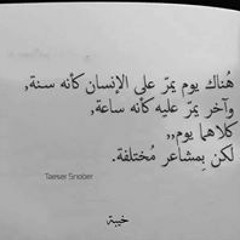 هُناك يوم يمرّ على الإنسان كأنه سنة,
وآخر يمرّ عليه كأنه ساعة,
كلاهما يوم,,
لكن بِمشاعر مُختلفة.
Taeser Snober
خيبة